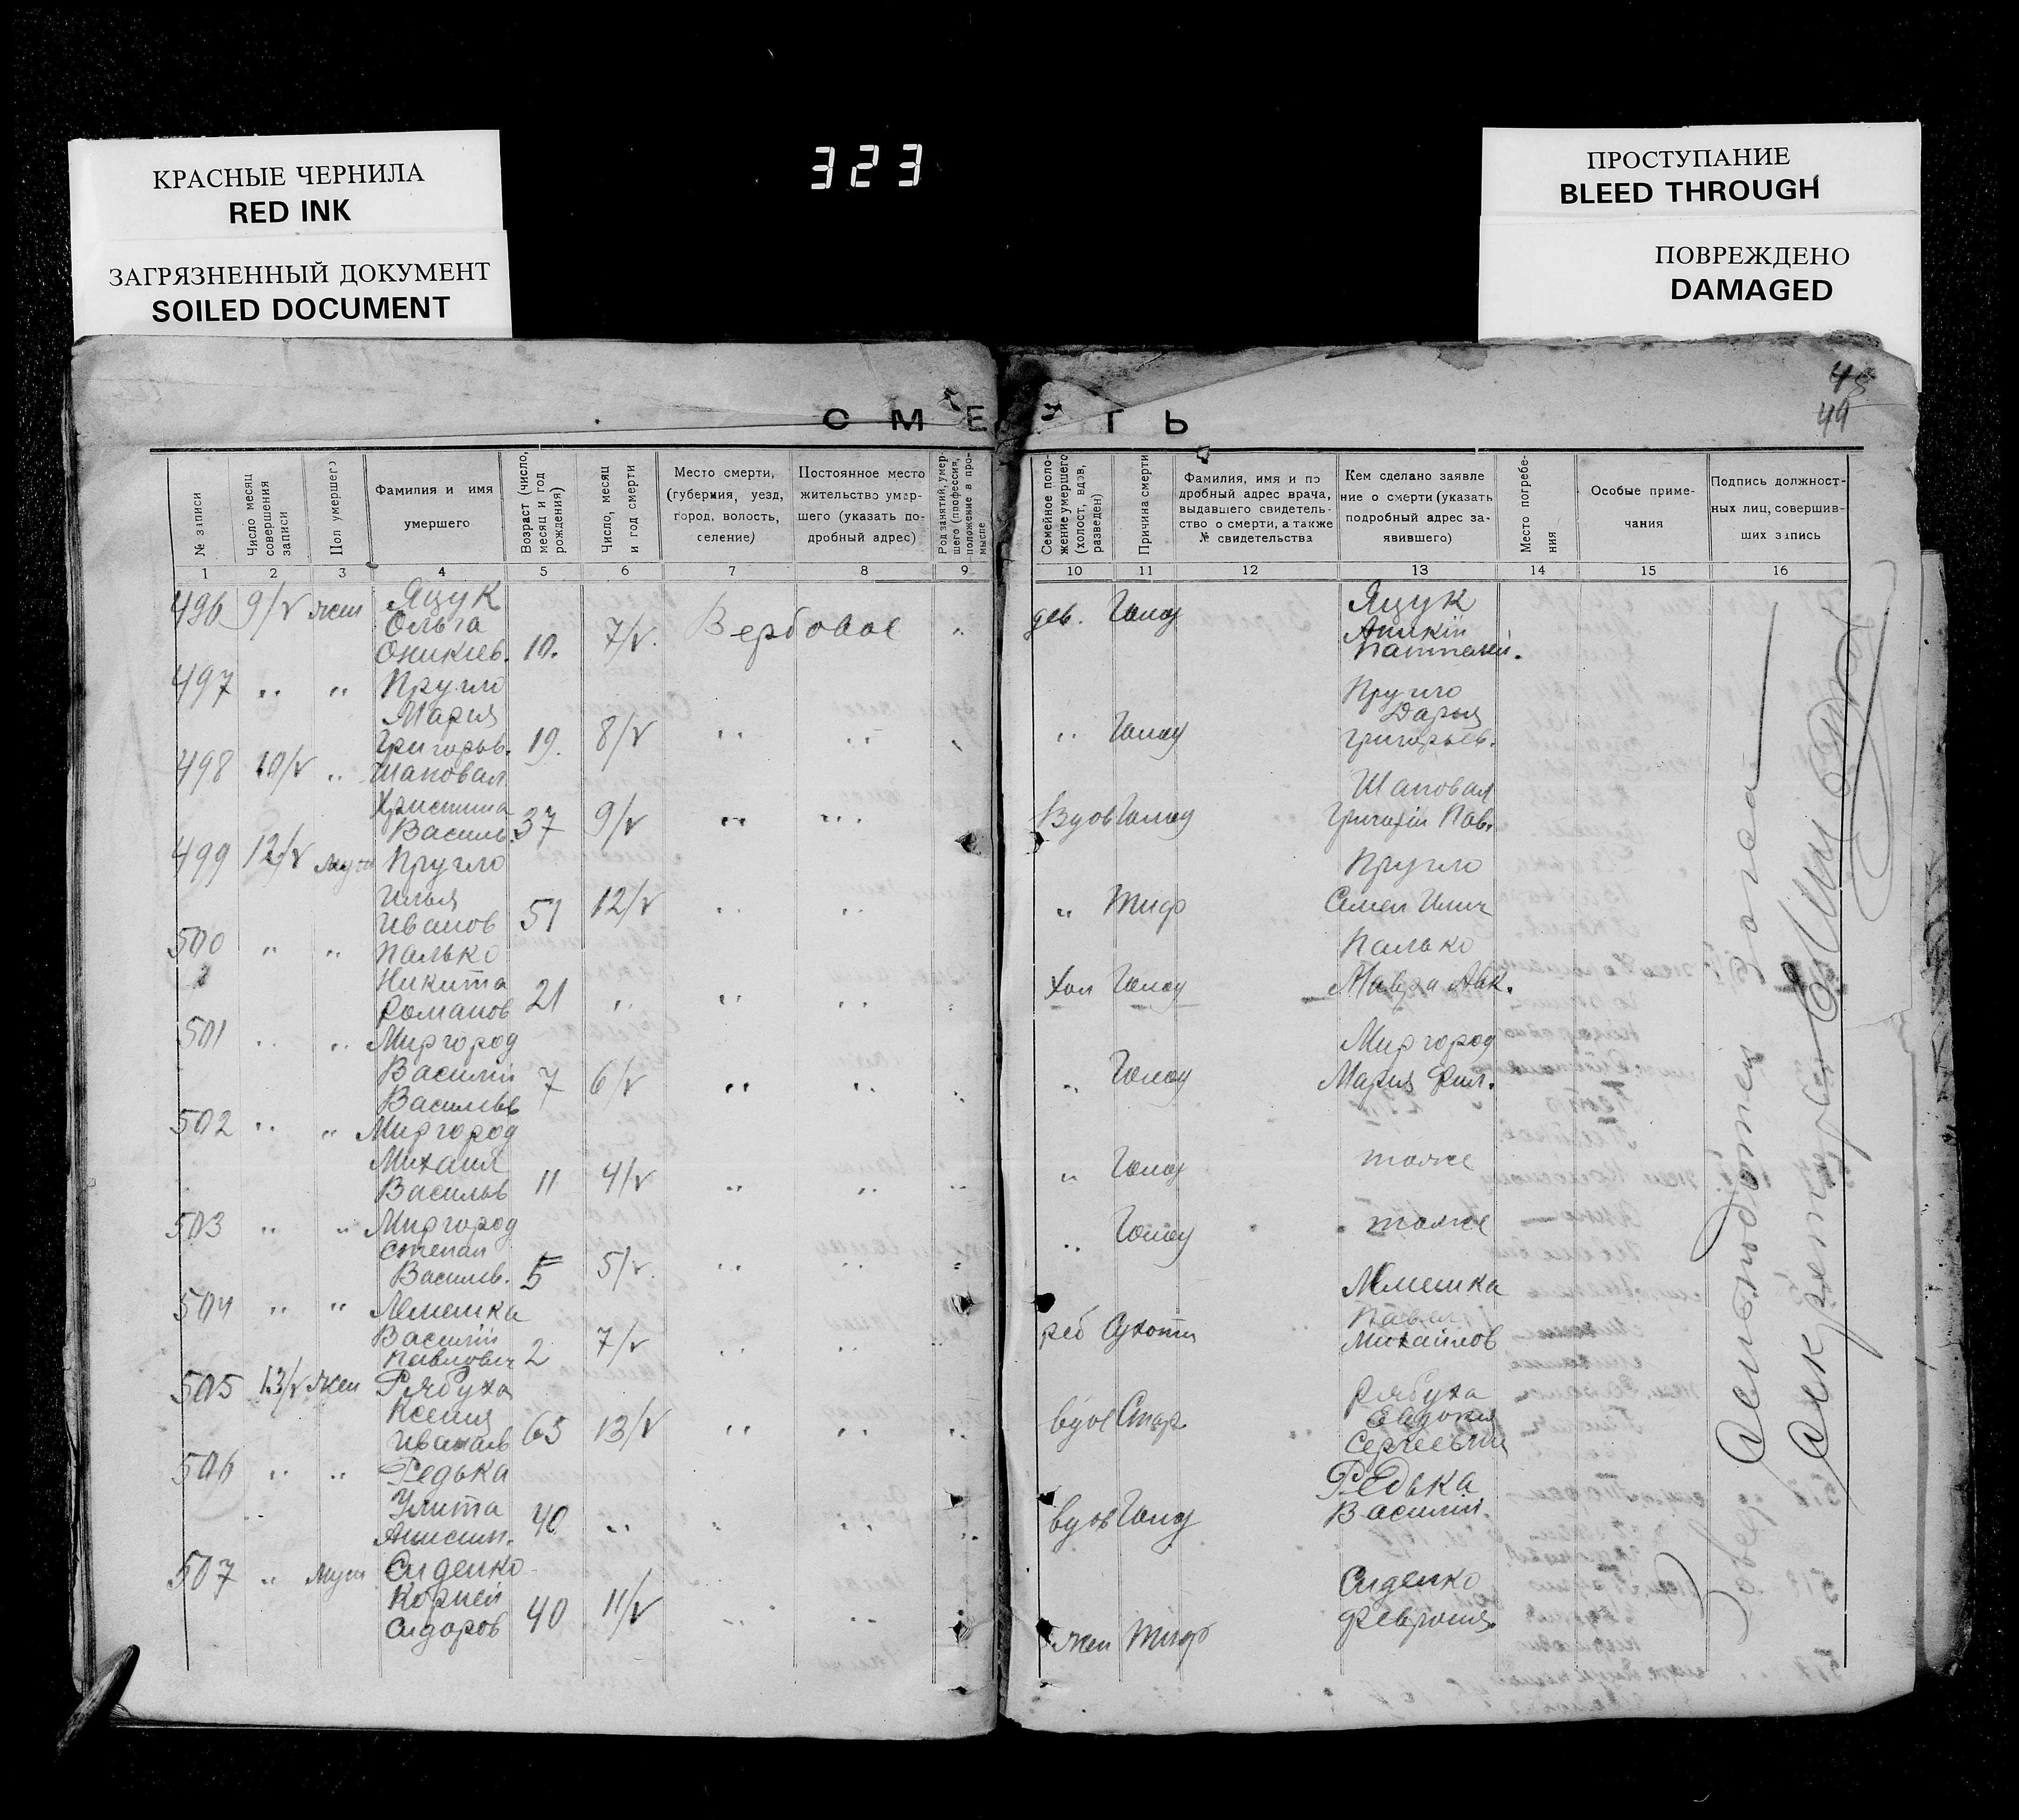 КРАСНЫЕ ЧЕРНИЛА
RED INK
ЗАГРЯЗНЕННЫЙ ДОКУМЕНТ
SOILED DOCUMENT
323
ПРОСТУПАНИЕ
BLEED THROUGH
ПОВРЕЖДЕНО
DAMAGED
49
СМЕРТЬ
№ записи
Число месяц совершения записи
Пол умершего
Фамилия и имя умершего
Возраст (число, месяц и год рождения)
Число, месяц и год смерти
Место смерти, (губерния, уезд, город, волость, селение)
Постоянное место жительство умершего (указать подробный адрес)
Род занятий, умершего (профессия, положение в промысле
Семейное положение умершего (холост, вдов, разведен)
Причина смерти
Фамилия, имя и подробный адрес врача, выдавшего свидетельство о смерти, а также № свидетельства
Кем сделано заявление о смерти (указать подробный адрес заявившего)
Место погребения
Особые примечания
Подпись должностных лиц, совершивших запись
1 2 3 4 5 6 7 8 9 10 11 12 13 14 15 16
496 9/V жен Яцук Ольга Оникиев. 10. 7/V. Вербовое " дев. Голод Яцук
497 " " Пругло Мария Григорьв. 19. 8/V " " " Голод Пругло Дарья Григорьев.
498 10/V " Шаповал Христина Василь. 37 9/V " " Вдов Голод Шаповал Григорій Пав.
499 12/V муж Пругло Илья Иванов 51 12/V " " " Тиф Пругло Семен Илич
500 " " Палько Никита Романов 21 " " " Хол Голод Палько Мавра
501 " " Миргород Василій Васильев 7 6/V " " " " Голод Миргород Мария Фил.
502 " " Миргород Михаил Васильв 11 4/V " " " " Голод тоже
503 " " Миргород Степан Васильв. 5 5/V. " " " " Голод тоже
504 " " Лемешка Василій Павлович 2 7/V " " " реб Сухоти Лемешка Павел Михаилов
505 13/V жен Рябуха Ксения 65 13/V " " " вдов Стар Рябуха Евдокия
506 " " Редька Улита Анисим. 40 " " " " вдов Голод Редька Василій
507 " муж Сиденко Корней Сидоров 40 11/V " " " жен Тиф Сиденко Феврония
Делопроизвотен
Секретарь